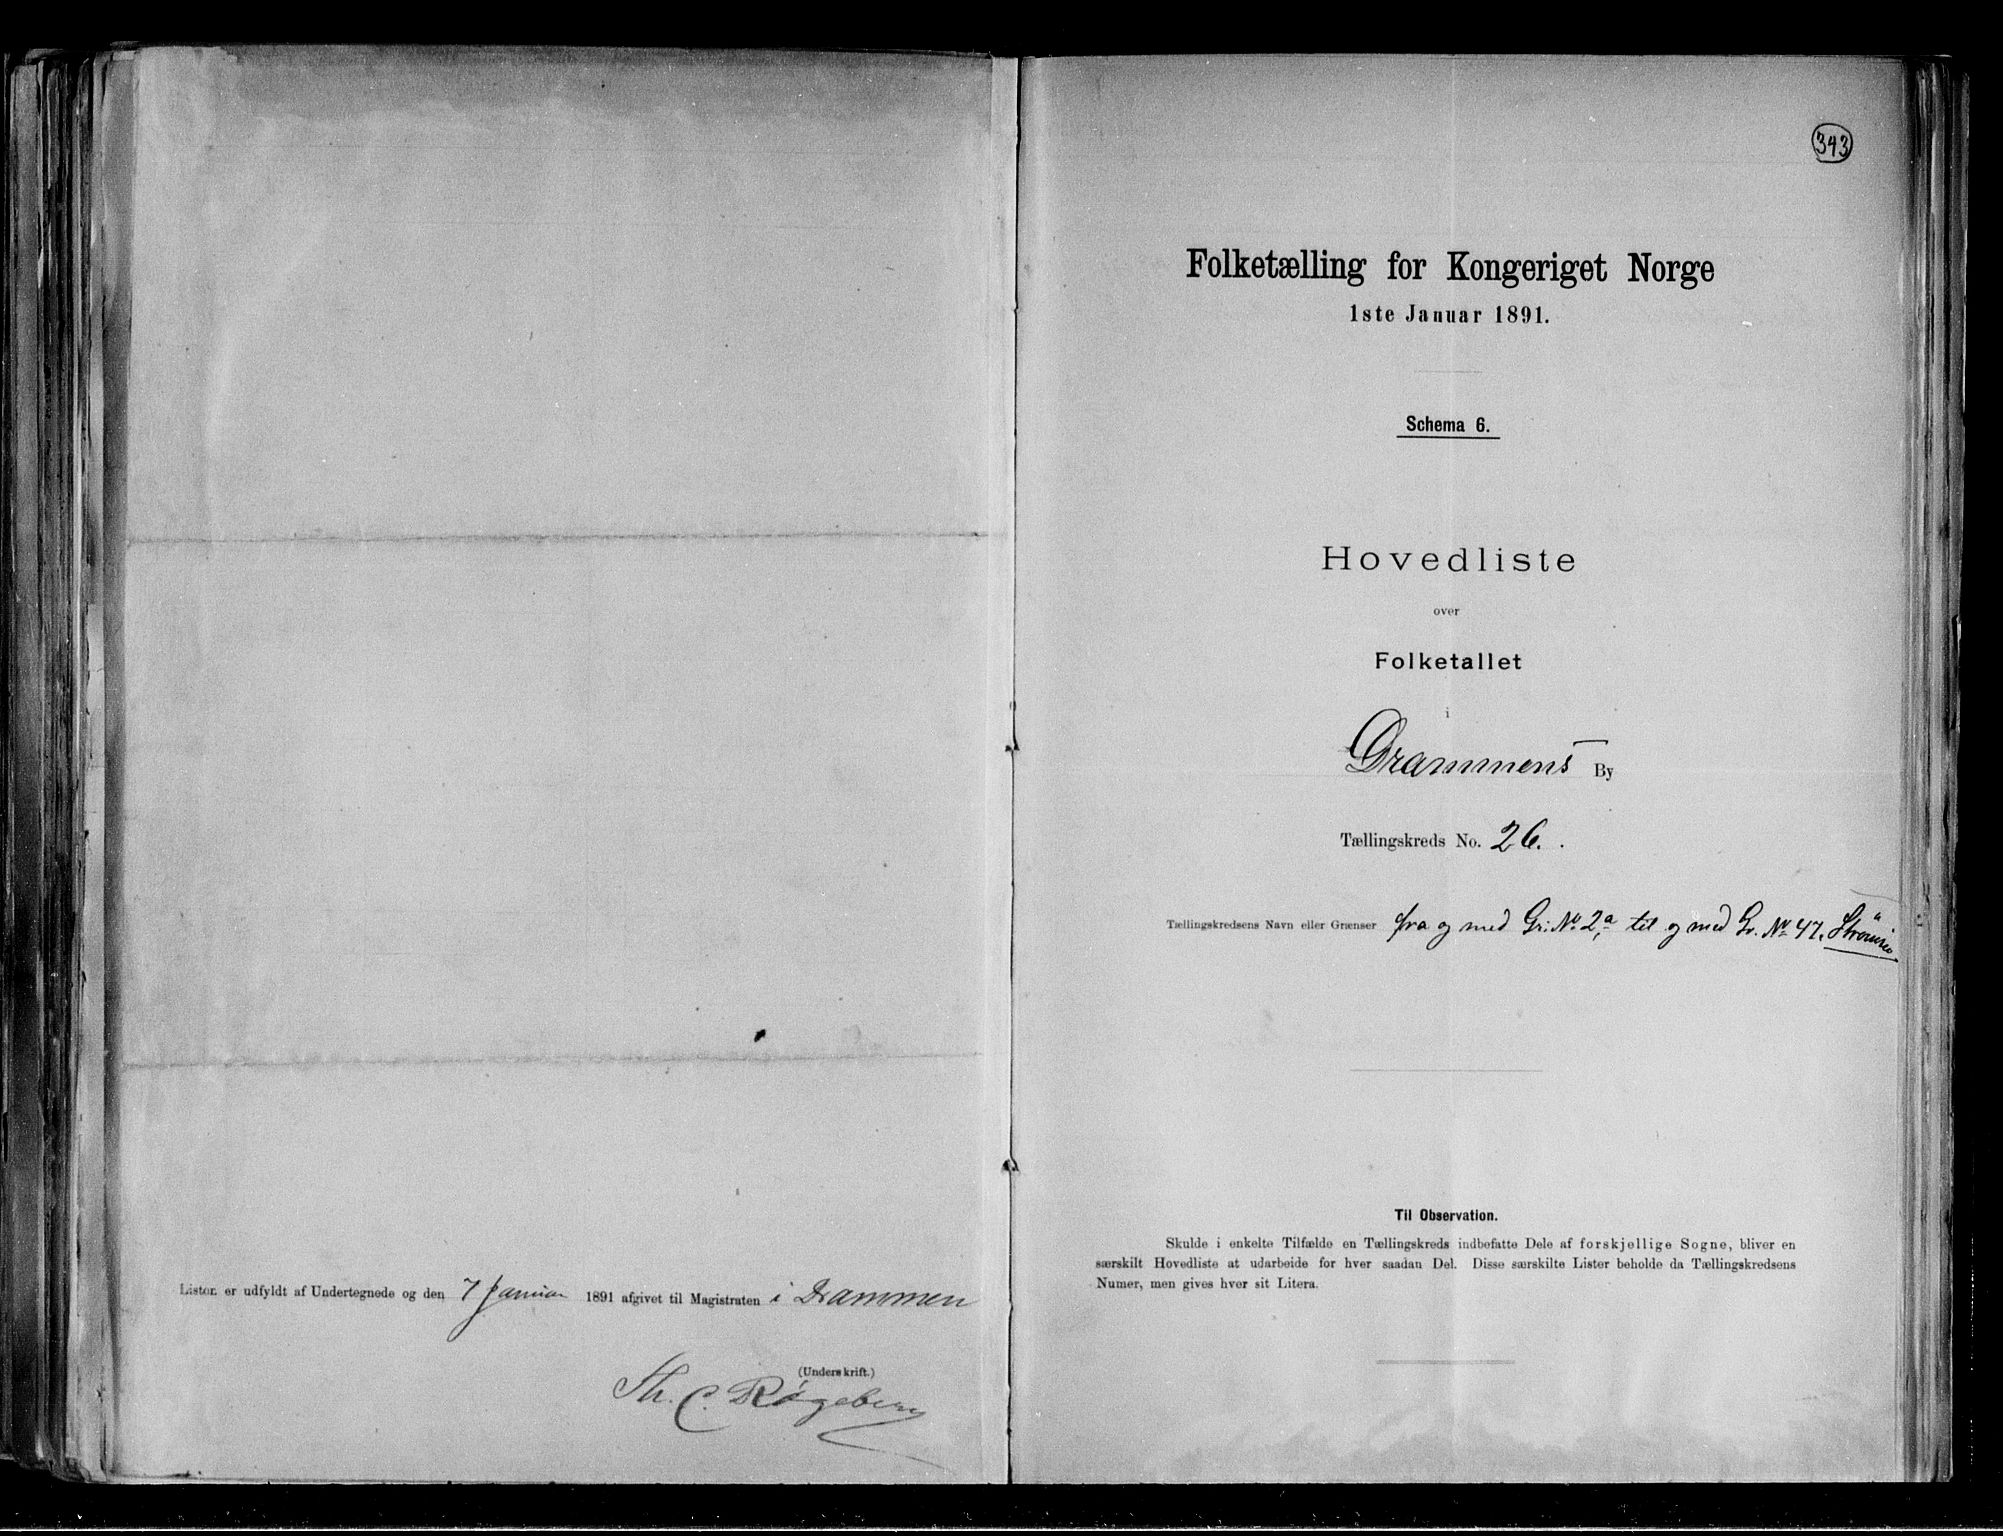 Listen er udfyldt af Undertegnede og den 7 Januar 1891 afgivet til Magistraten i Drammen
(Underskrift.)
Th. C. Røgeberg
343
Folketælling for Kongeriget Norge
1ste Januar 1891.
Schema 6.
Hovedliste
over
Folketallet
i
Drammens By
Tællingskreds No. 26.
Tællingskredsens Navn eller Grænser fra og med Gr. No. 2a, til og med Gr. No 47, Strømsø.
Til Observation.
Skulde i enkelte Tilfælde en Tællingskreds indbefatte Dele af forskjellige Sogne, bliver en
særskilt Hovedliste at udarbeide for hver saadan Del. Disse særskilte Lister beholde da Tællingskredsens
Numer, men gives hver sit Litera.